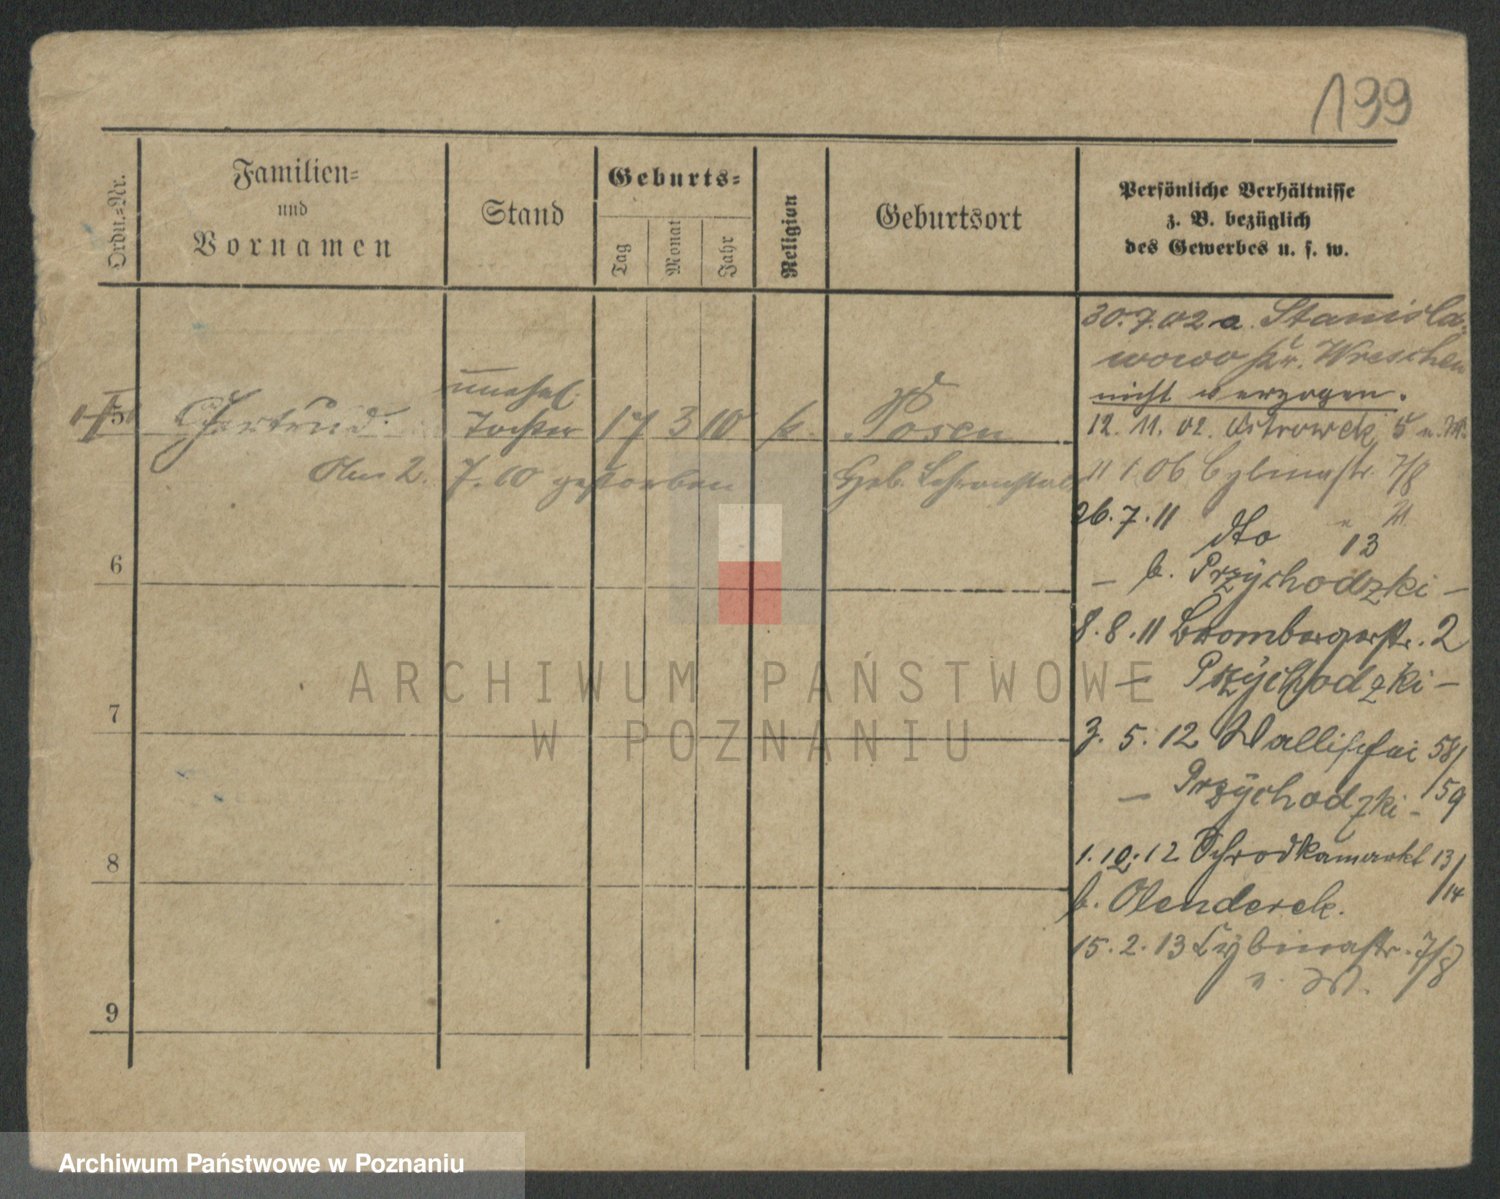 199
Ordn.=Nr.
Familien=
und
Vornamen
Stand
Geburts=
Tag
Monat
Jahr
Religion
Geburtsort
Persönliche Verhältnisse
z. B. bezüglich
des Gewerbes u. s. w.
30.7.02 a. Stanisla-
wowo Kr. Wreschen
nicht verzogen.
5 Gertrud unehel. Tochter 17 3 10 k. Posen
12. 11. 02. Ostrowek 5
Am 2. 7. 10 gestorben Geb.
11 1 06 Cybinastr. 7/8
26. 7. 11 dto 13
6
– b. Przychodzki –
8. 8. 11 Brombergerstr. 2
– Przychodzki –
7
3. 5. 12 Wallischei 58/59
– Przychodzki –
1. 10. 12 Schrodkamarkt 13/14
8
b. Olenderek.
15. 2. 13 Cybinastr. 7/8
9
ARCHIWUM PAŃSTWOWE
W POZNANIU
Archiwum Państwowe w Poznaniu